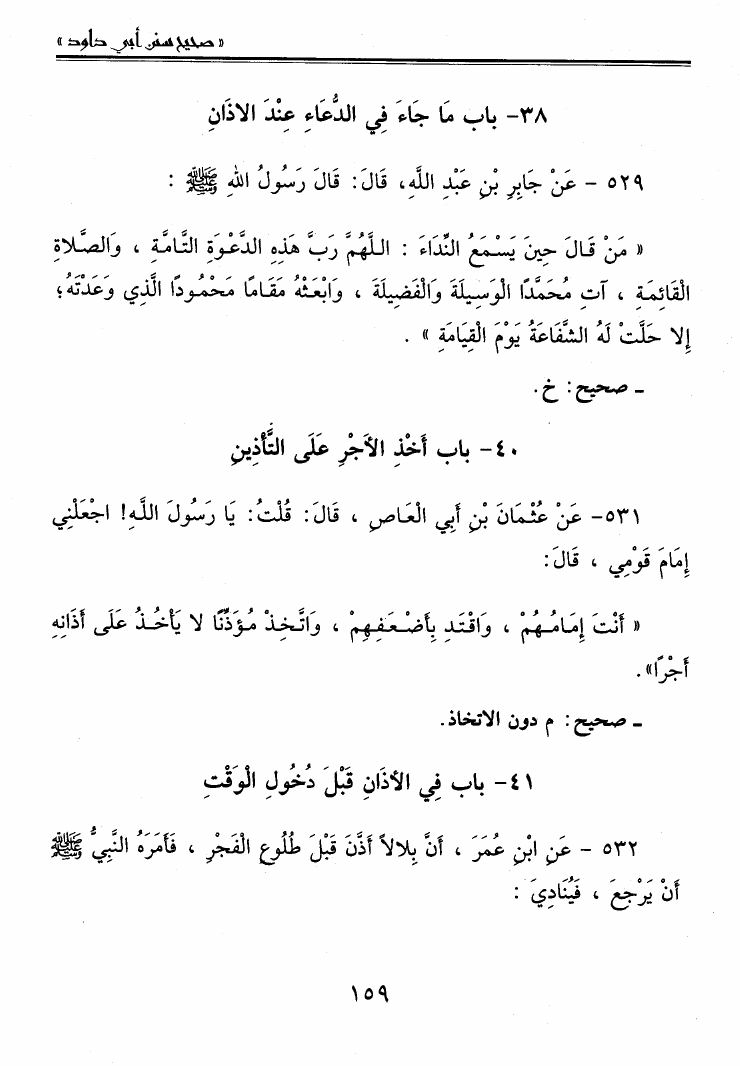 « صحيح سنن أبي داود »
٣٨- باب مَا جَاءَ فِي الدُّعَاءِ عِنْدَ الاذَانِ
٥٢٩ - عَنْ جَابِرِ بْنِ عَبْدِ اللَّهِ، قَالَ: قَالَ رَسُولُ اللهِ ﷺ :
« مَنْ قَالَ حِينَ يَسْمَعُ النِّدَاءَ : اللَّهُمَّ رَبَّ هَذِهِ الدَّعْوَةِ التَّامَّةِ ، وَالصَّلاةِ
الْقَائِمَةِ ، آتِ مُحَمَّدًا الْوَسِيلَةَ وَالْفَضِيلَةَ ، وَابْعَثْهُ مَقَامًا مَحْمُودًا الَّذِي وَعَدْتَهُ؛
إِلا حَلَّتْ لَهُ الشَّفَاعَةُ يَوْمَ الْقِيَامَةِ » .
ـ صحيح: خ.
٤٠- باب أَخْذِ الأَجْرِ عَلَى التَّأْذِينِ
٥٣١- عَنْ عُثْمَانَ بْنِ أَبِي الْعَاصِ ، قَالَ: قُلْتُ: يَا رَسُولَ اللَّهِ! اجْعَلْنِي
إِمَامَ قَوْمِي ، قَالَ:
« أَنْتَ إِمَامُهُمْ ، وَاقْتَدِ بِأَضْعَفِهِمْ ، وَاتَّخِذْ مُؤَذِّنًا لا يَأْخُذُ عَلَى أَذَانِهِ
أَجْرًا» .
ـ صحيح: م دون الاتخاذ.
٤١- باب فِي الأذَانِ قَبْلَ دُخُولِ الْوَقْتِ
٥٣٢ - عَنِ ابْنِ عُمَرَ ، أَنَّ بِلالاً أَذَّنَ قَبْلَ طُلُوعِ الْفَجْرِ ، فَأَمَرَهُ النَّبِيُّ ﷺ
أَنْ يَرْجِعَ ، فَيُنَادِيَ :
١٥٩